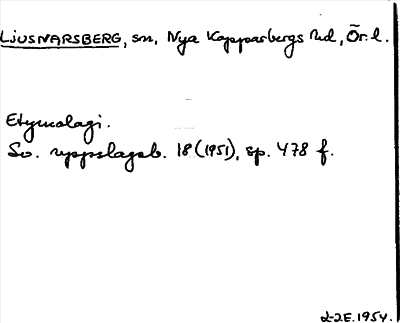 LJUSNARSBERG, sn, Nya Kopparbergs hd, Ör. l.
Etymologi.
Sv. uppslagsb. 18 (1951), sp. 478 f.
2-2E.1954.